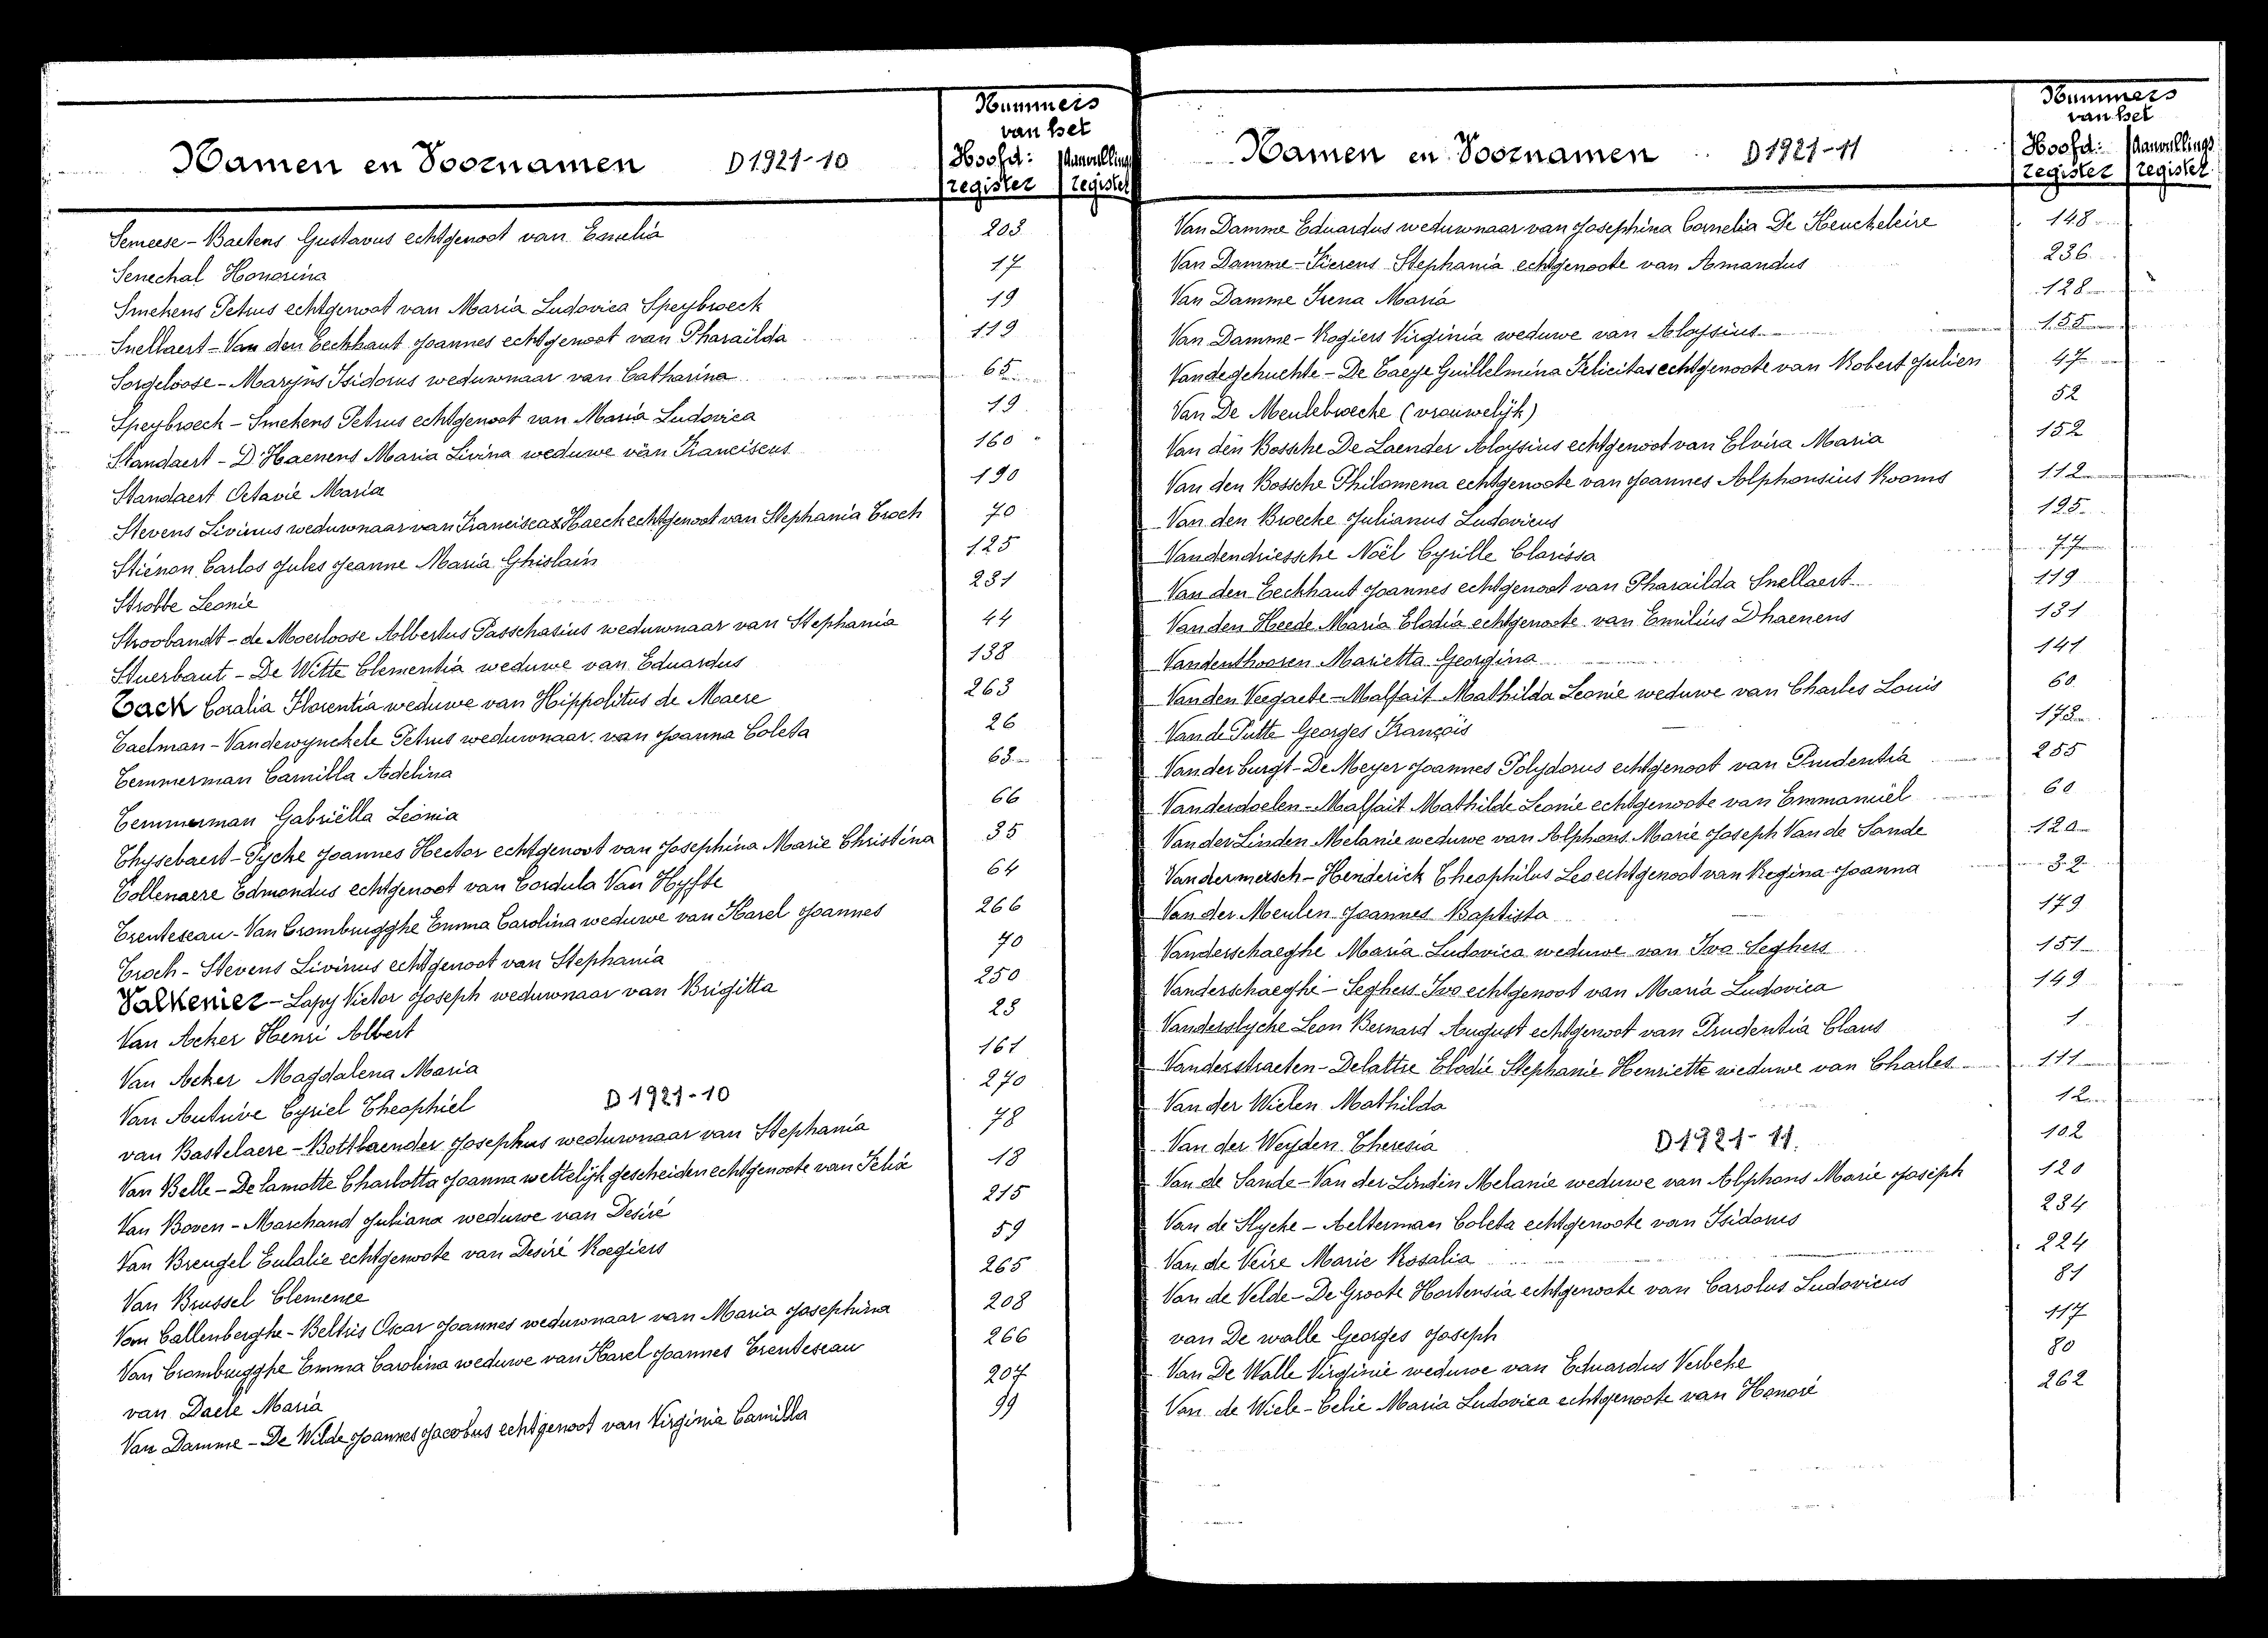 Namen en Voornamen D1921-10
Nummers van het
Hoofd: register Aanvullings register
Semeese - Baetens Gustavus echtgenoot van Emelia 203
Senechal Honorina 17
Smekens Petrus echtgenoot van Maria Ludovica Speybroeck 19
Snellaert - Van den Eeckhaut Joannes echtgenoot van Pharaïlda 119
Sorgeloose - Maryns Isidorus weduwnaar van Catharina 65
Speybroeck - Smekens Petrus echtgenoot van Maria Ludovica 19
Standaert - D'Haenens Maria Livina weduwe van Franciscus 160
Standaert Octavie Maria 190
Stevens Livinus weduwnaar van Francisca Haeck echtgenoot van Stephania Troch 70
Stiénon Carlos Jules Jeanne Maria Ghislain 125
Strobbe Leonie 231
Stroobandt - de Moerloose Albertus Passchasius weduwnaar van Stephania 44
Stuerbaut - De Witte Clementia weduwe van Eduardus 138
Tack Coralia Florentia weduwe van Hippolitus de Maere 263
Taelman - Vandewynckele Petrus weduwnaar van Joanna Coleta 26
Temmerman Camilla Adelina 63
Temmerman Gabriëlla Leonia 66
Thysebaert - Pycke Joannes Hector echtgenoot van Josephina Marie Christina 35
Tollenaere Edmondus echtgenoot van Cordula Van Hyfte 64
Trenteseau - Van Crombrugghe Emma Carolina weduwe van Karel Joannes 266
Troch - Stevens Livinus echtgenoot van Stephania 70
Valkenier - Lapy Victor Joseph weduwnaar van Brigitta 250
Van Acker Henri Albert 23
Van Acker Magdalena Maria 161
Van Autrive Cyriel Theophiel 270
D1921-10
van Bastelaere - Bottlaender Josephus weduwnaar van Stephania 78
Van Belle - De Lamotte Charlotta Joanna wettelijk gescheiden echtgenoote van Felix 18
Van Boven - Marchand Juliana weduwe van Desiré 215
Van Breugel Eulalie echtgenoote van Desiré Roegiers 59
Van Brussel Clemence 265
Van Callenberghe - Beltris Oscar Joannes weduwnaar van Maria Josephina 208
Van Crombrugghe Emma Carolina weduwe van Karel Joannes Trenteseau 266
van Daele Maria 207
Van Damme - De Wilde Joannes Jacobus echtgenoot van Virginia Camilla 99
Namen en Voornamen D1921-11
Nummers van het
Hoofd: register Aanvullings register
Van Damme Eduardus weduwnaar van Josephina Cornelia De Keuckeleire 148
Van Damme - Fierens Stephania echtgenoote van Amandus 236
Van Damme Irena Maria 128
Van Damme - Rogiers Virginia weduwe van Aloysius 155
Vandegehuchte - De Taeye Guillelmina Felicitas echtgenoote van Robert Julien 47
Van De Meulebroecke (vrouwelijk) 52
Van den Bossche De Laender Aloysius echtgenoot van Elvira Maria 152
Van den Bossche Philomena echtgenoote van Joannes Alphonsius Rooms 112
Van den Broecke Julianus Ludovicus 195
Vandendriessche Noël Cyrille Clarissa 77
Van den Eeckhaut Joannes echtgenoot van Pharaïlda Snellaert 119
Van den Heede Maria Elodia echtgenoote van Emilius Dhaenens 131
Vandenthooren Marietta Georgina 141
Van den Veegaete - Malfait Mathilda Leonie weduwe van Charles Louis 60
Van de Putte Georges François 173
Van der burgt - De Meyer Joannes Polydorus echtgenoot van Prudentia 255
Vanderdoelen - Malfait Mathilde Leonie echtgenoote van Emmanuël 60
Van der Linden Melanie weduwe van Alphons Marie Joseph Van de Sande 120
Vandermersch - Henderick Theophilus Leo echtgenoot van Regina Joanna 32
Van der Meulen Joannes Baptista 179
Vanderschaeghe Maria Ludovica weduwe van Ivo Seghers 151
Vanderschaeghe - Seghers Ivo echtgenoot van Maria Ludovica 149
Vanderslycke Leon Bernard August echtgenoot van Prudentia Claus 1
Vanderstraeten - Delattre Elodie Stephanie Henriette weduwe van Charles 111
Van der Wielen Mathilda 12
Van der Weyden Theresia 102
D1921-11.
Van de Sande - Van der Lindin Melanie weduwe van Alphons Marie Joseph 120
Van de Slycke - Aelterman Coleta echtgenoote van Isidorus 234
Van de Veire Marie Rosalia 224
Van de Velde - De Groote Hortensia echtgenoote van Carolus Ludovicus 81
van De walle Georges Joseph 117
Van De Walle Virginie weduwe van Eduardus Verbeke 80
Van de Wiele - Celie Maria Ludovica echtgenoote van Honoré 262